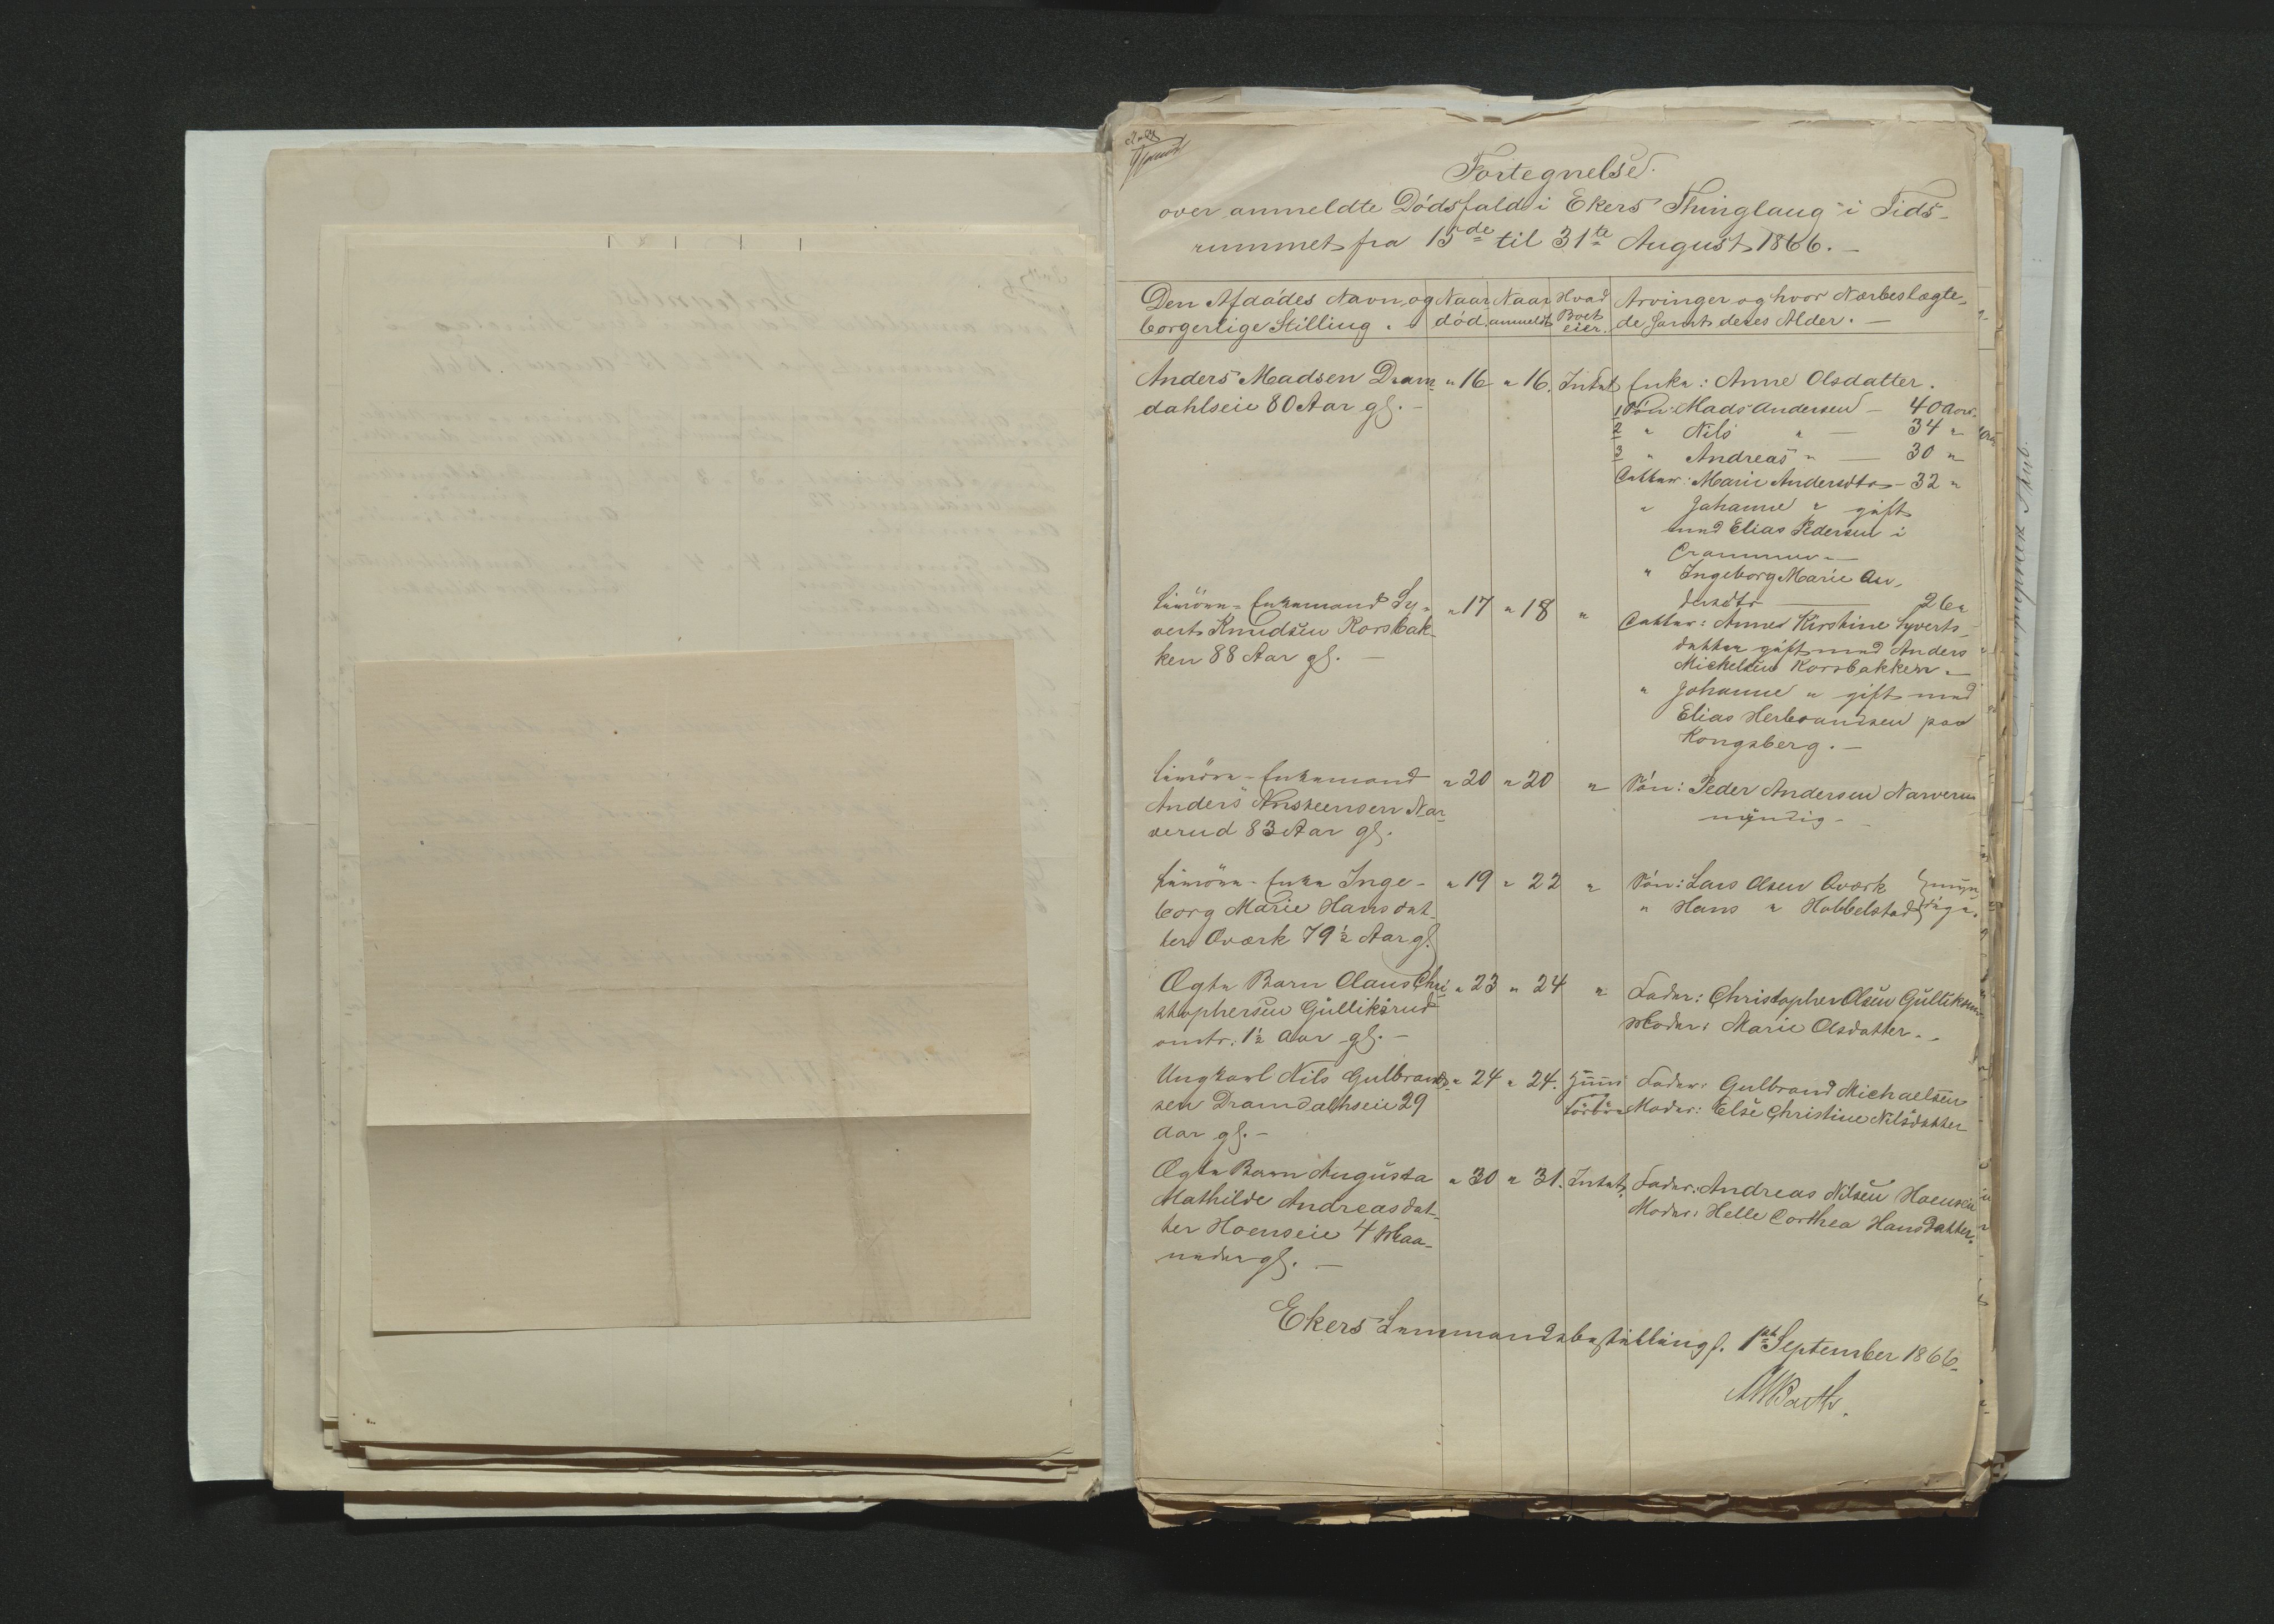 Fortegnelse
over anmeldte Dödsfald i Ekers Thinglaug i Tids-
rummet fra 15de til 31te August 1866. -
Den Afdödes Navn og
borgerlige Stilling.
Naar
död.
Naar
anmeldt
Hvad
Boet
eier.
Arvinger og hvor Nærbeslægte-
de samt deres Alder. -
Anders Madsen Dram-
dahlseie 80 Aar gl. -
" 16 " 16. Intet
Enke: Anne Olsdatter.
1 Sön: Mads Andersen - 40 Aar.
2 " Nils " - 34 "
3 " Andreas " - 30 "
Datter: Marie Andersdtr - 32 "
" Johanne " gift
med Elias Pedersen i
Drammen -
" Ingeborg Marie An-
dersdtr - 26 "
Enkemand Sy-
vert Knudsen Korsbak-
ken 88 Aar gl. -
" 17 " 18 "
Datter: Anne Kirstine Syverts-
datter gift med Anders
Michelsen Korsbakken -
" Johanne " gift med
Elias Herbrandsen paa
Kongsberg. -
Enkemand
Anders Anskeensen Nar-
verud 83 Aar gl.
" 20 " 20 "
Sön: Peder Andersen Narverud
myndig -
Enke Inge-
borg Marie Hansdat-
ter Qværk 79½ Aar gl.
" 19 " 22 "
Sön: Lars Olsen Qværk } myn-
" Hans " Hobbelstad } dige.
Ægte Barn Olaus Chri-
stophersen Gulliksrud
omtr. 1½ Aar gl. -
" 23 " 24 "
Fader: Christopher Olsen Gulliksrud
Moder: Marie Olsdatter. -
Ungkarl Nils Gulbrand-
sen Dramdahlseie 29
Aar gl. -
" 24 " 24.
Fader: Gulbrand Michaelsen
Moder: Else Christine Nilsdatter
Ægte Barn Augusta
Mathilde Andreasdat-
ter Hoenseie 4 Maa-
neder gl. -
" 30 " 31. Intet.
Fader: Andreas Nilsen Hoenseie
Moder: Helle Dorthea Hansdatter.
Ekers Lensmandsbestilling d. 1ste September 1866.